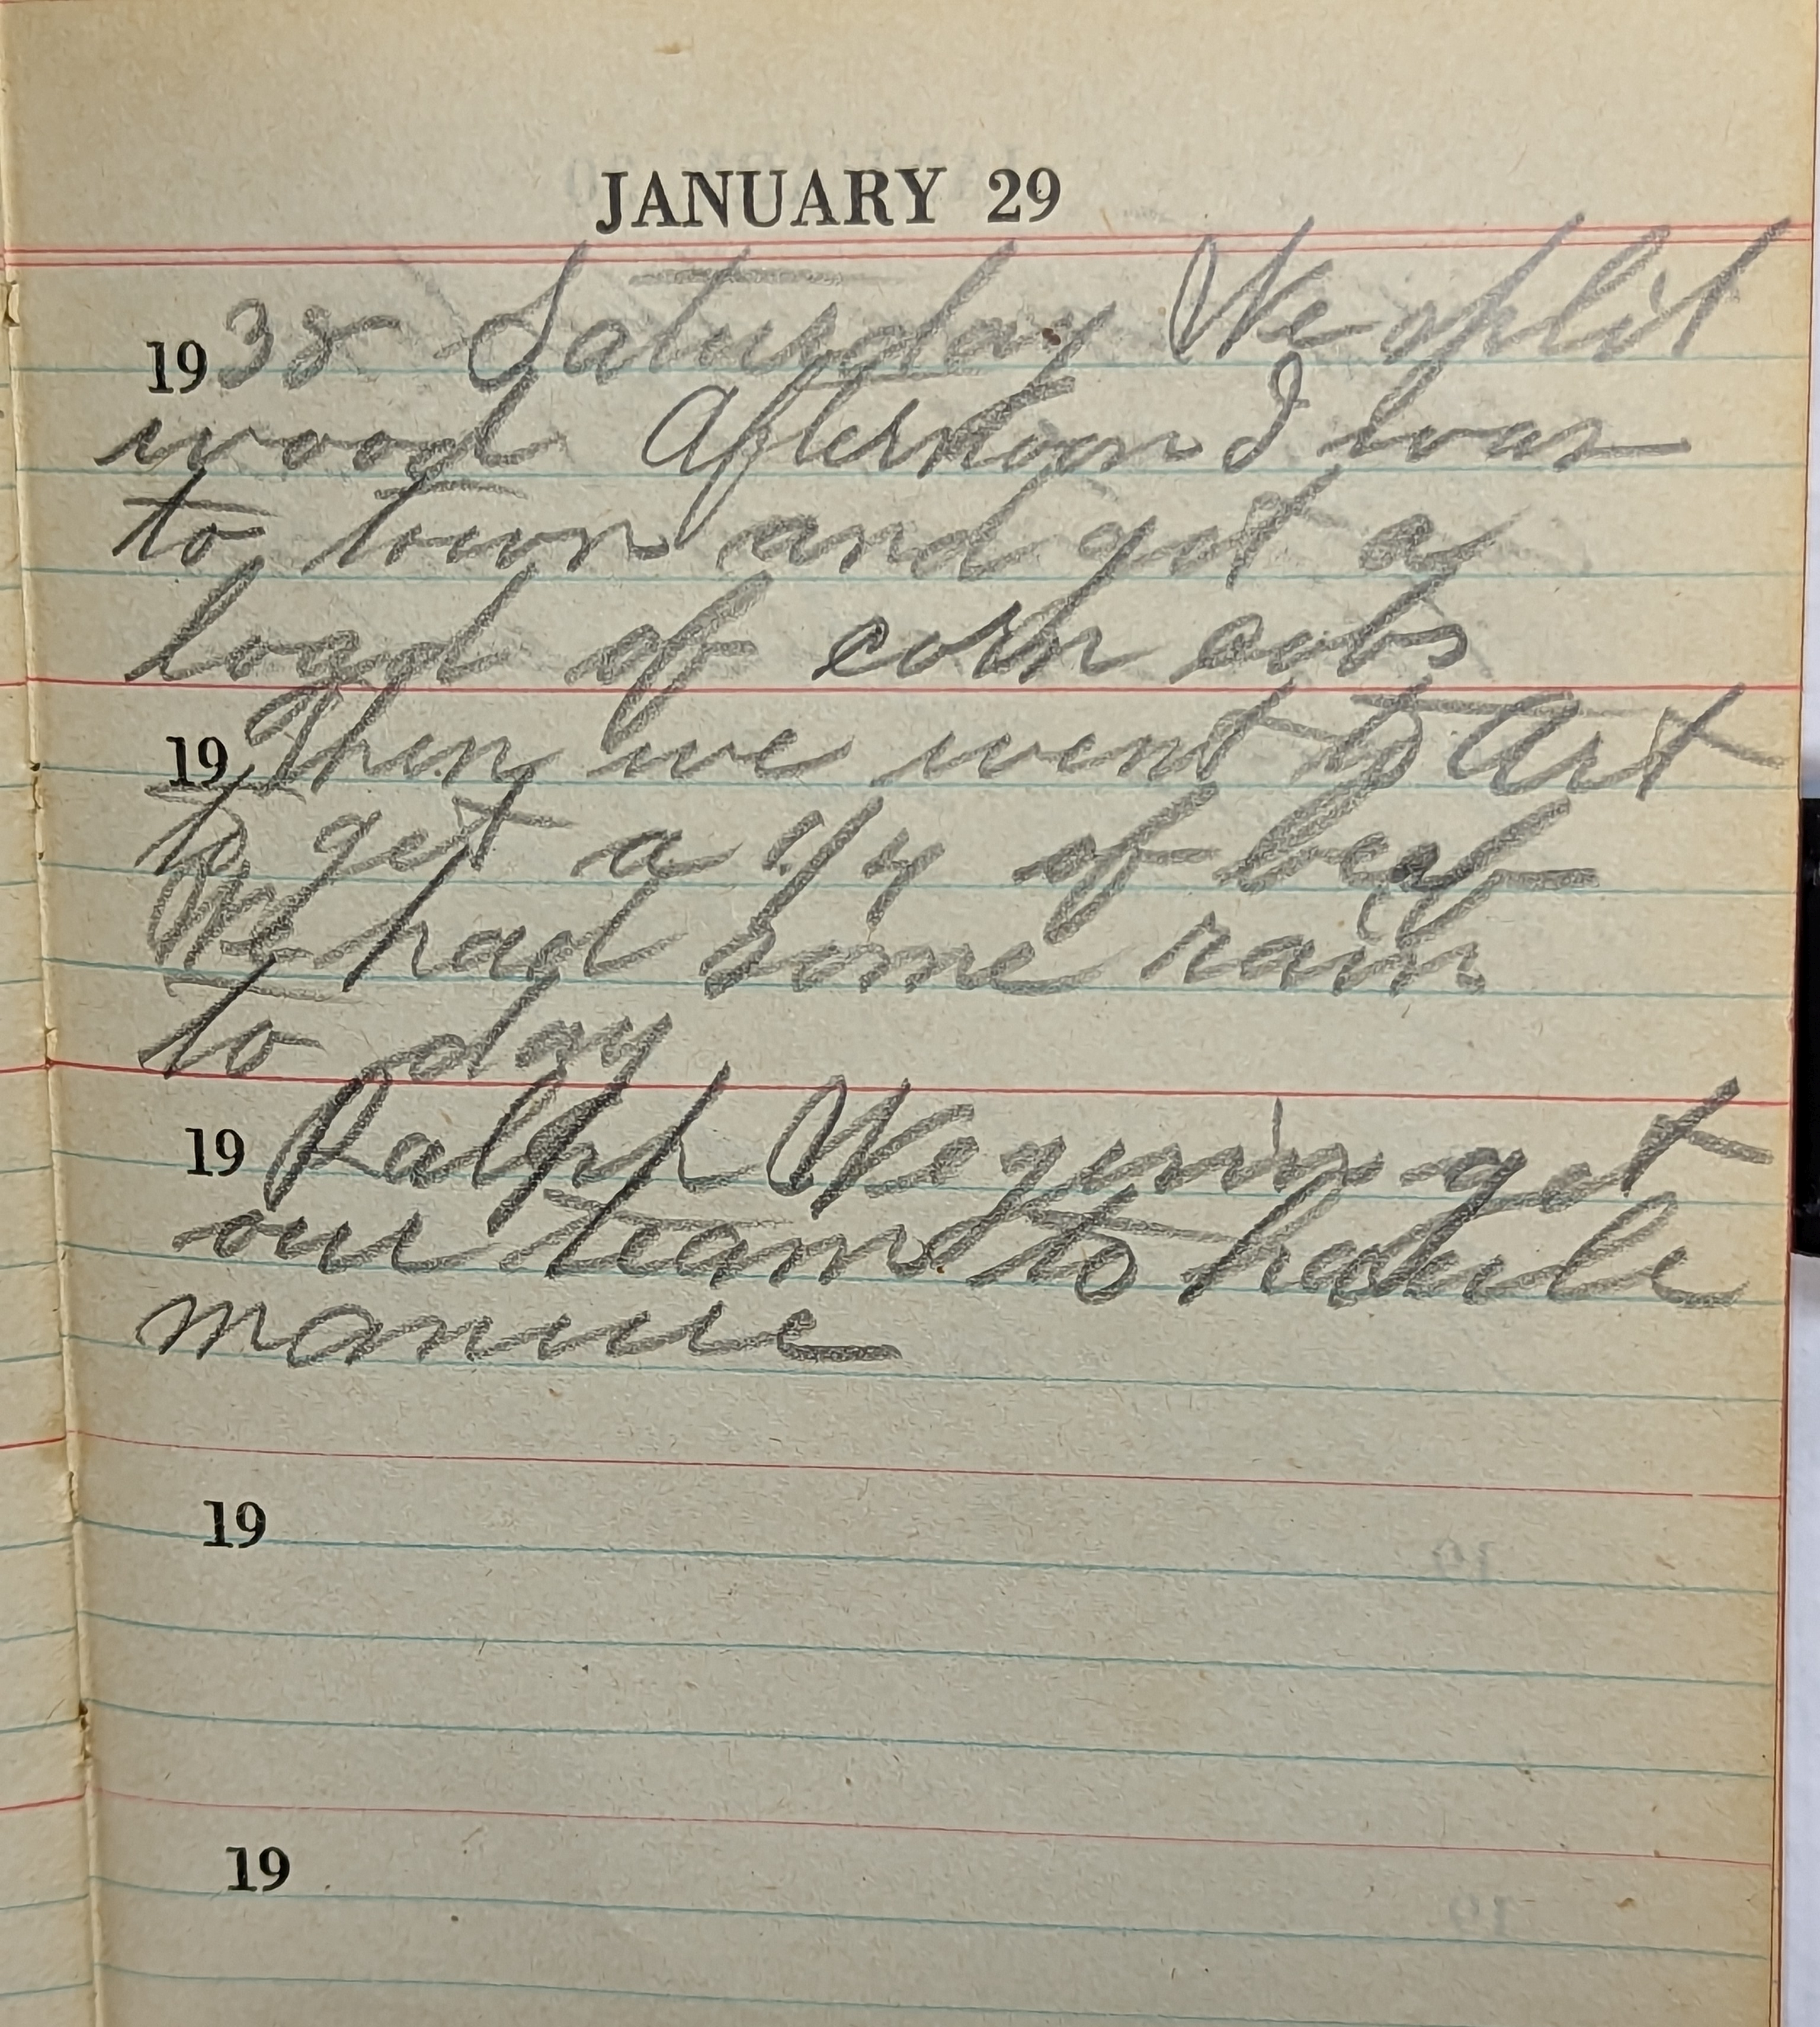 JANUARY 29
1938 Saturday We split
wood Afternoon I was
to town and got a
load of corn cobs
19 Then we went to Art
to get a 1/4 of beef
We had some rain
to day
19 Ralph Wegmin get
our team to haule
manure
19
19